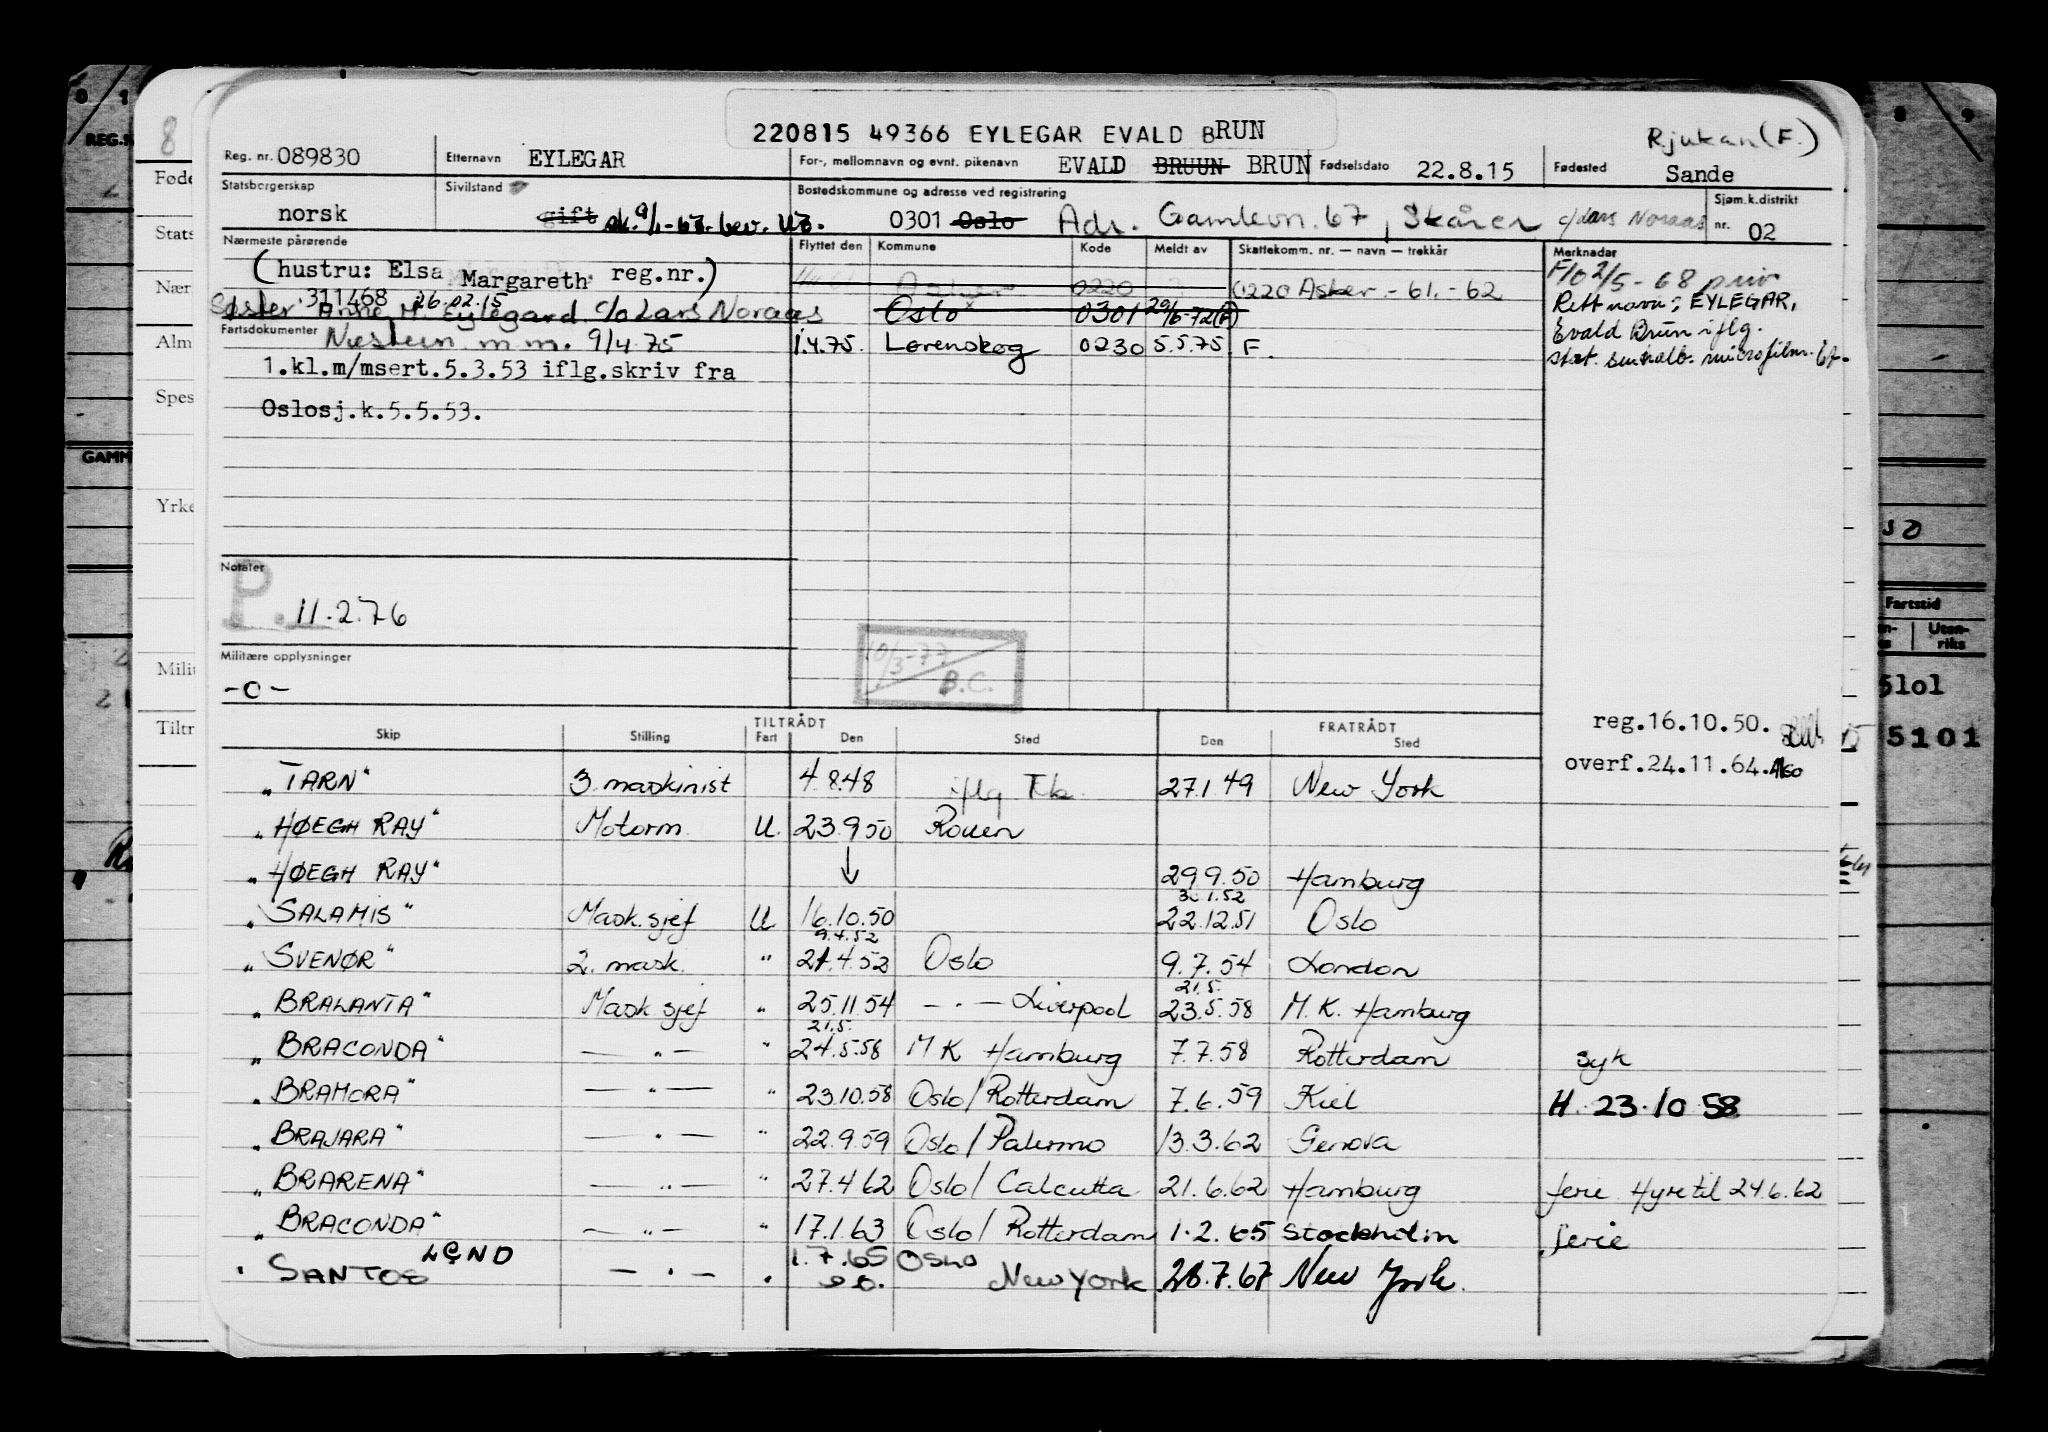 220815 49366 EYLEGAR EVALD BRUN
Rjukan (F.)
Reg. nr. 089830 Etternavn EYLEGAR For-, mellomnavn og evnt. pikenavn EVALD BRUUN BRUN Fødselsdato 22.8.15 Fødested Sande
Statsborgerskap norsk Sivilstand gift Bostedskommune og adresse ved registrering 0301 Oslo Adr. Gamlevn. 67, Skårer c/o Lars Noraas Sjøm.k.distrikt nr. 02
Nærmeste pårørende
(hustru: Elsa Margareth reg.nr.)
311468 26.02.15
Søster Anne M. Eylegard c/o Lars Noraas
Flyttet den Kommune Kode Meldt av Skattekomm. nr. — navn — trekkår Merknader
Asker 0220 0220 Asker - 61. - 62
Oslo 0301 29/6-72 (F)
1.4.75. Lørenskog 0230 5.5.75 F.
F/O 2/5 - 68 priv
Rett navn: EYLEGAR,
Evald Brun iflg.
stat. sentralb. microfilm. 67.
Fartsdokumenter
9/4 75
1.kl.m/msert.5.3.53 iflg.skriv fra
Oslosj.k.5.5.53.
Notater
P. 11.2.76
10/3-77 B.C.
Militære opplysninger
-o-
reg.16.10.50.
overf.24.11.64.
TILTRÅDT FRATRÅDT
Skip Stilling Fart Den Sted Den Sted
"TARN" 3. maskinist 4.8.48 iflg Tk. 27.1 49 New York
"HØEGH RAY" Motorm. U. 23.9.50 Rouen
"HØEGH RAY" ↓ 29.9.50 Hamburg
3.1.52
"SALAMIS" Mask.sjef U 16.10.50 22.12.51 Oslo
9.4.52
"SVENØR" 2. mask. " 21.4.52 Oslo 9.7.54 London
21.5.
"BRALANTA" Mask sjef " 25.11.54 — . — Liverpool 23.5.58 M.K. Hamburg
21.5.
"BRACONDA" — " — " 24.5.58 M K Hamburg 7.7.58 Rotterdam syk
"BRAMORA" — " — " 23.10.58 Oslo/Rotterdam 7.6.59 Kiel H. 23.10 58
"BRAJARA" — " — " 22.9.59 Oslo/Palermo 13.3.62 Genova
"BRARENA" — " — " 27.4 62 Oslo/Calcutta 21.6.62 Hamburg ferie Hyre til 24.6.62
"BRACONDA" — " — " 17.1.63 Oslo/Rotterdam 1.2.65 Stockholm ferie
LGND 1.7.65 OSLO
" SANTOS — " — " New York 28.7.67 New York.
8
REG.N
Føde
Stats
Nær
Alm
Spes
GAMM
Yrke
Milit
Tiltr
0 1
8 9
Fartstid
Uten-riks
5lol
5101